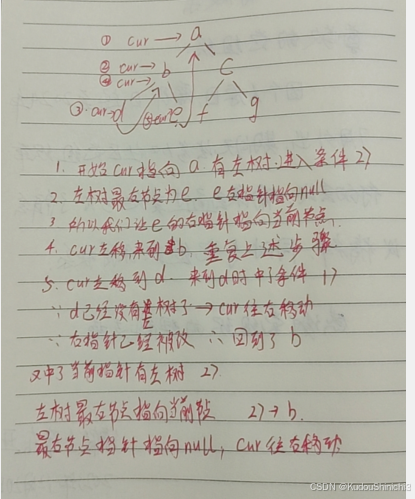 ① cur→ a
② cur→ b c
④ cur→
③ cur→ d e f g
1. 开始cur指向a 有左树,进入条件2)
2. 左树最右节点为e. e右指针指向null
3 所以我们让e的右指针指向当前节点.
4. cur左移来到b, 重复上述步骤
5. cur左移到d. 来到d时中了条件 1)
∵ d已经没有左树了→cur往右移动
∵ 右指针已经被改 ∴ 回到了b
又中了当前指针有左树 2)
左树最右节点指向当前 2)→b.
最右节点指针指向null, cur往右移动
CSDN @KudouShinichi